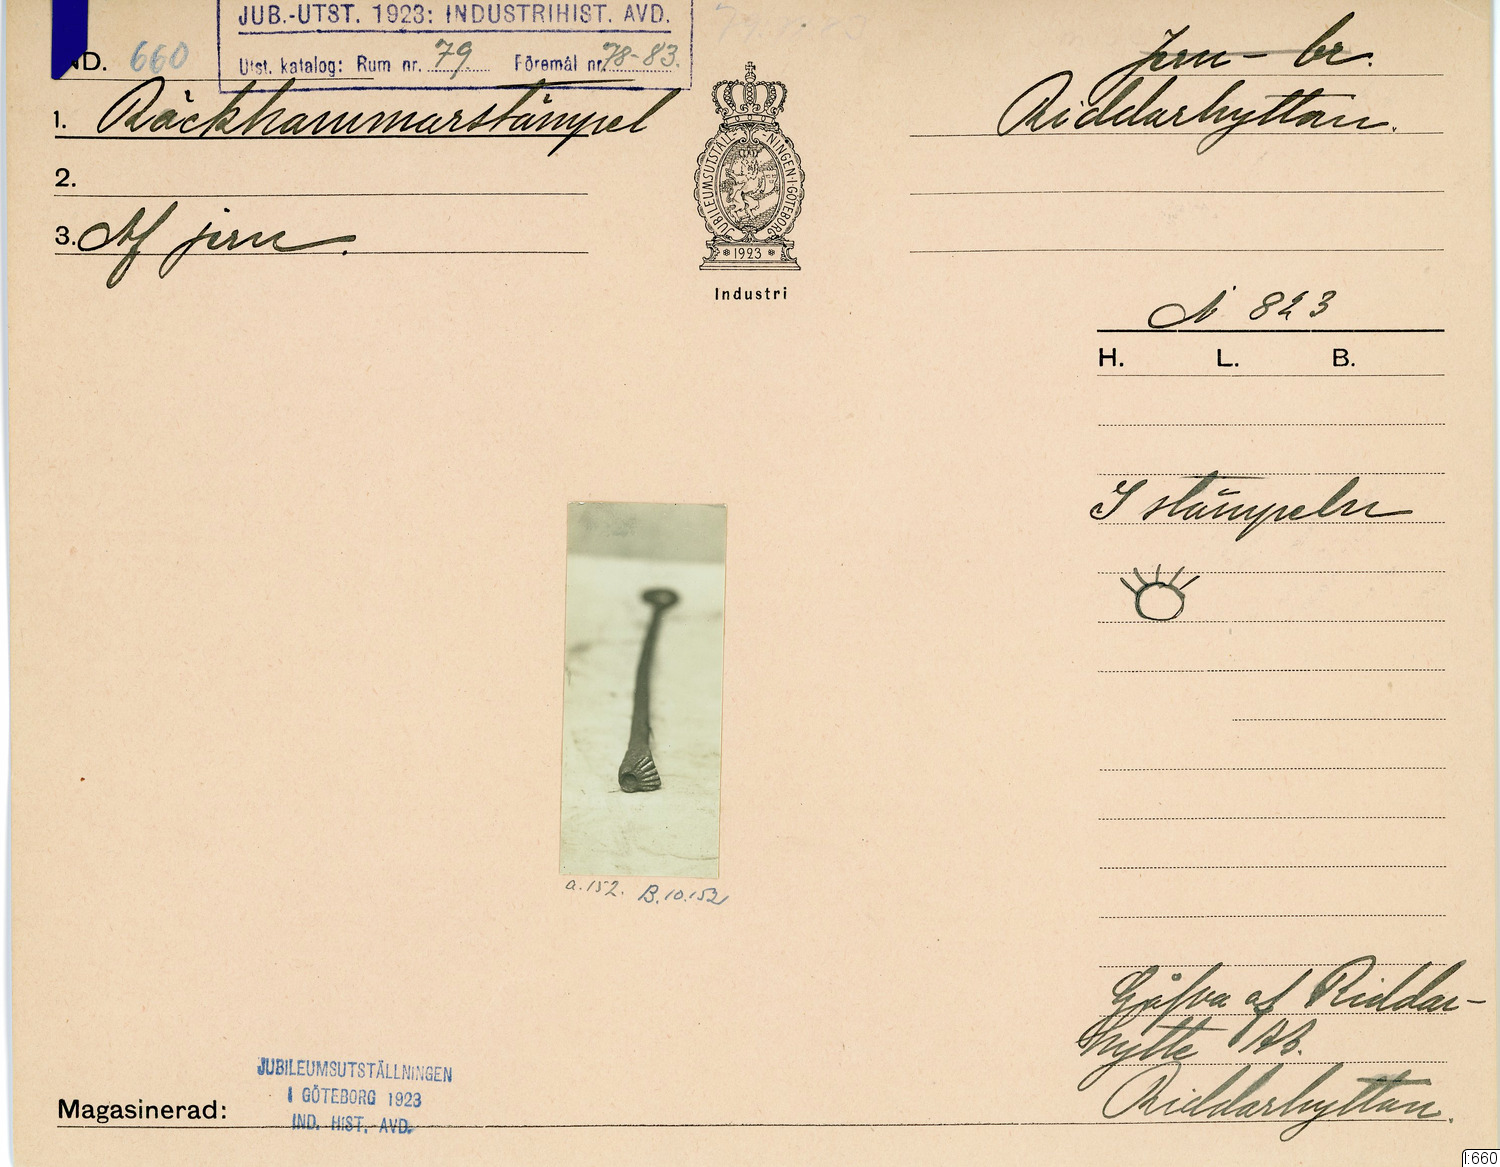 JUB.-UTST. 1923: INDUSTRIHIST. AVD.
Utst. katalog: Rum nr. 79 Föremål nr. 78-83.
ND. 660
Jern- br.
1. Räckhammarstämpel
Riddarhyttan.
2.
3. Af jern.
JUBILEUMSUTSTÄLLNINGEN I GÖTEBORG
1923
Industri
N 823
H. L. B.
I stämpeln
a.152. B.10.152
Gåfva af Riddar-
hytte AB.
Riddarhyttan.
JUBILEUMSUTSTÄLLNINGEN
I GÖTEBORG 1923
IND. HIST. AVD.
Magasinerad:
I:660